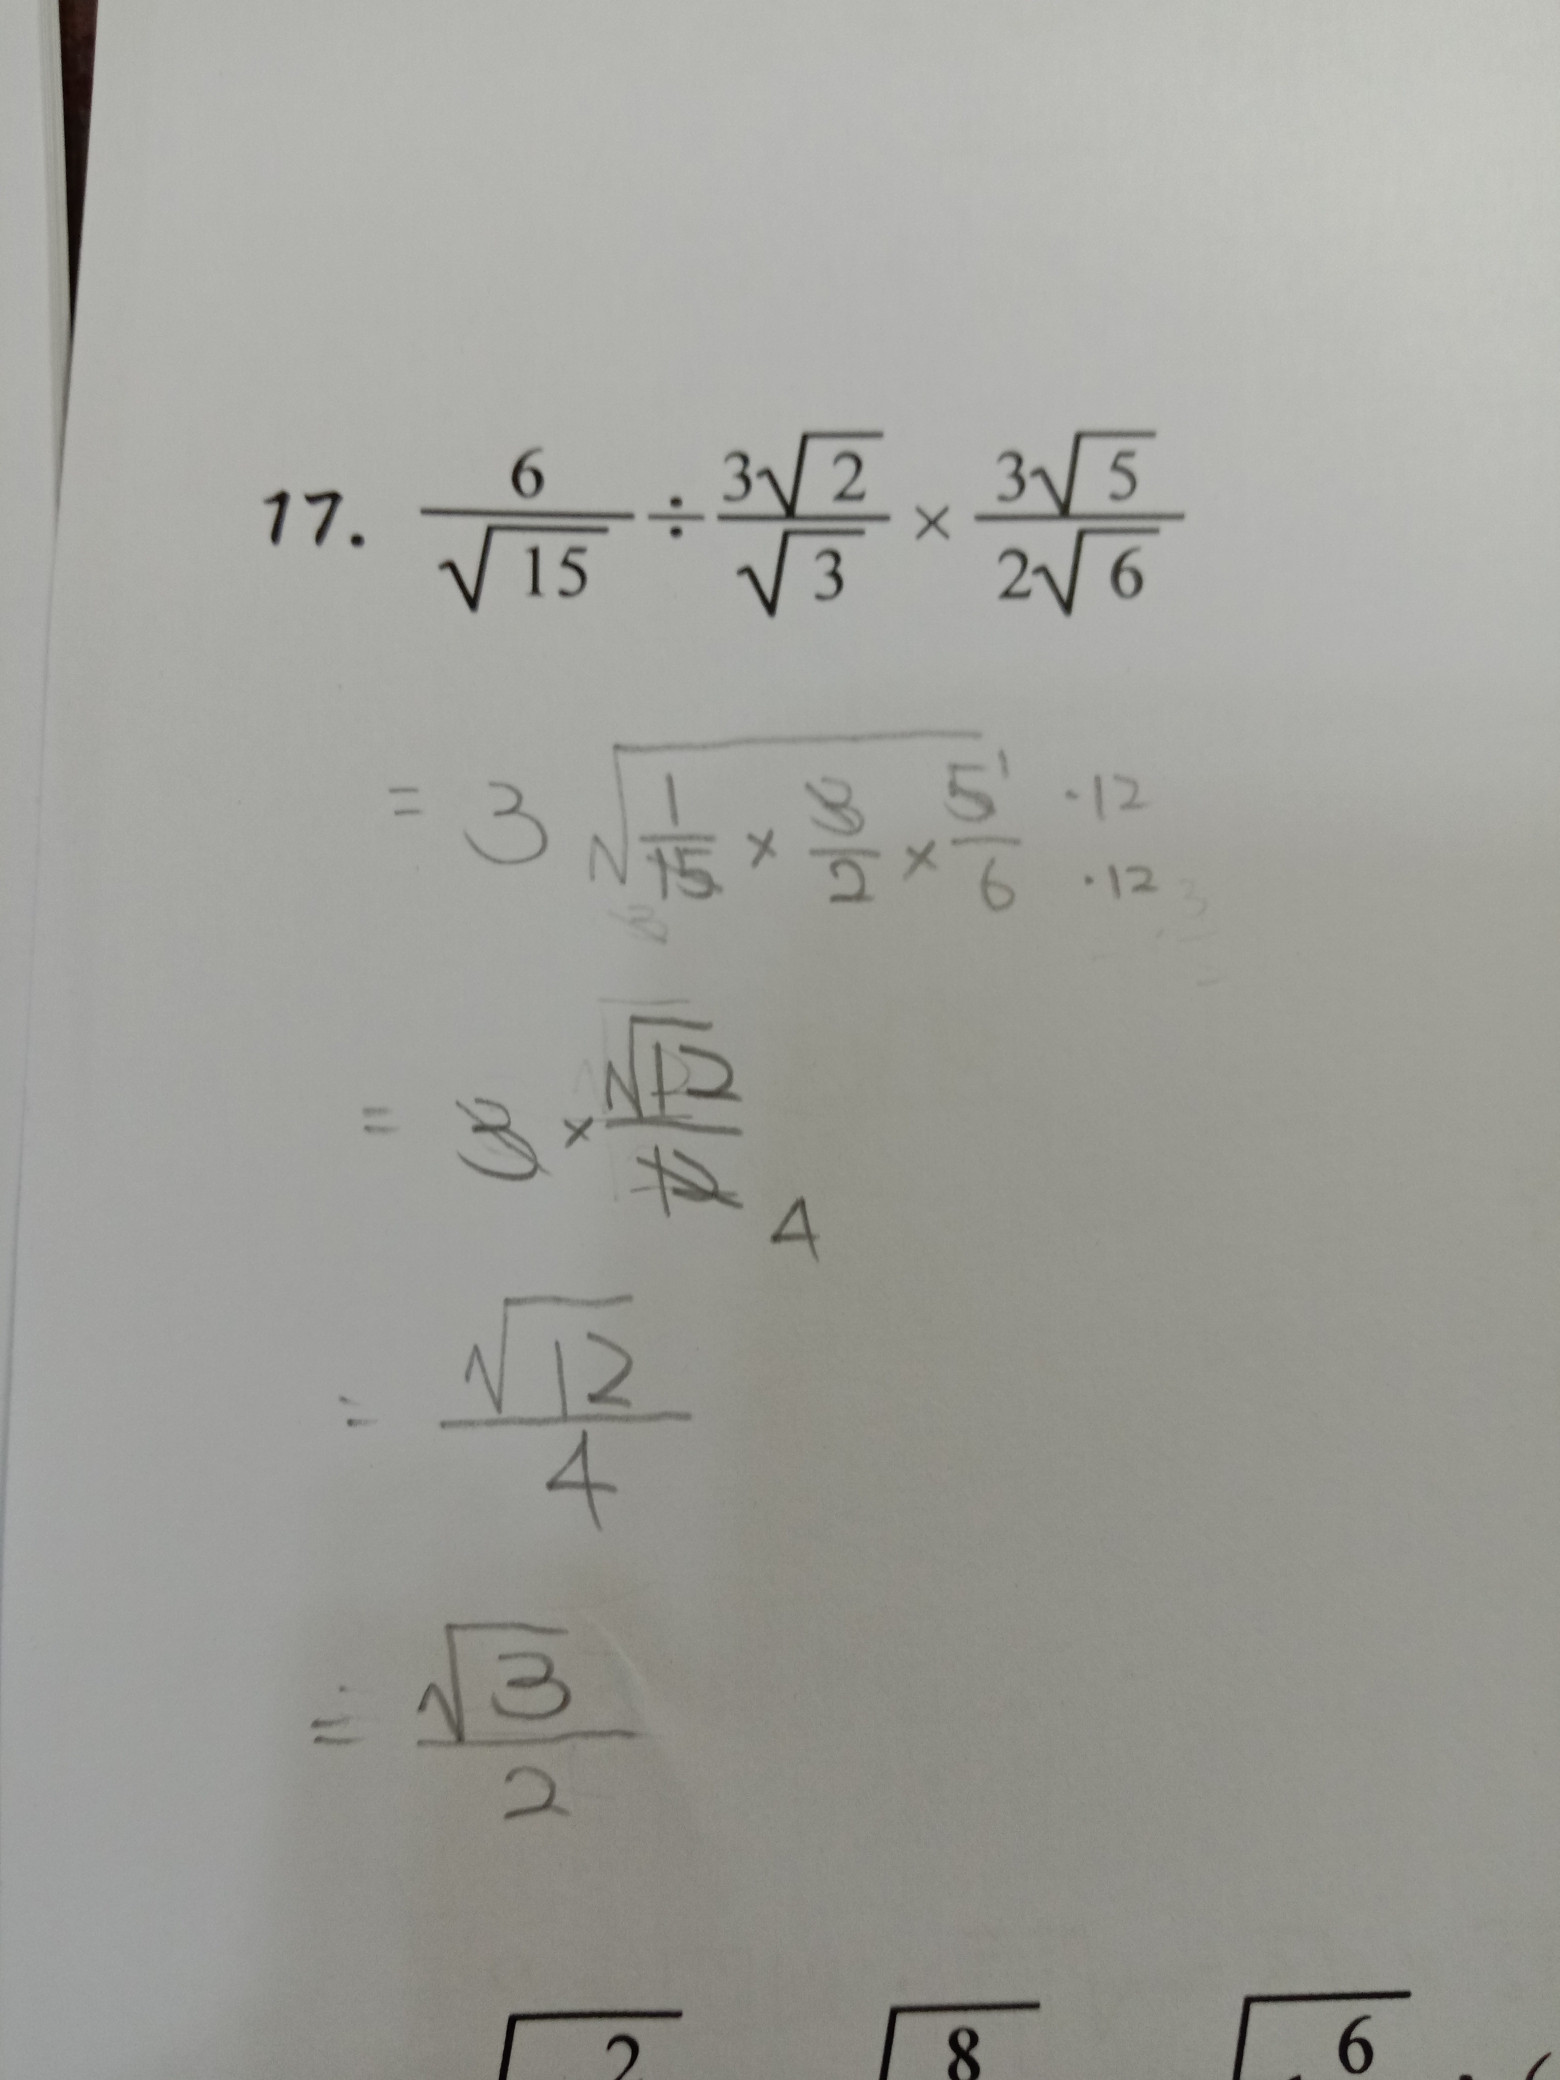 17. 6/√15 ÷ 3√2/√3 × 3√5/2√6
= 3 √(1/15 × 3/2 × 5/6) 1 ·12 ·12
= 3 × √12/12 4
= √12/4
= √3/2
2 8 6